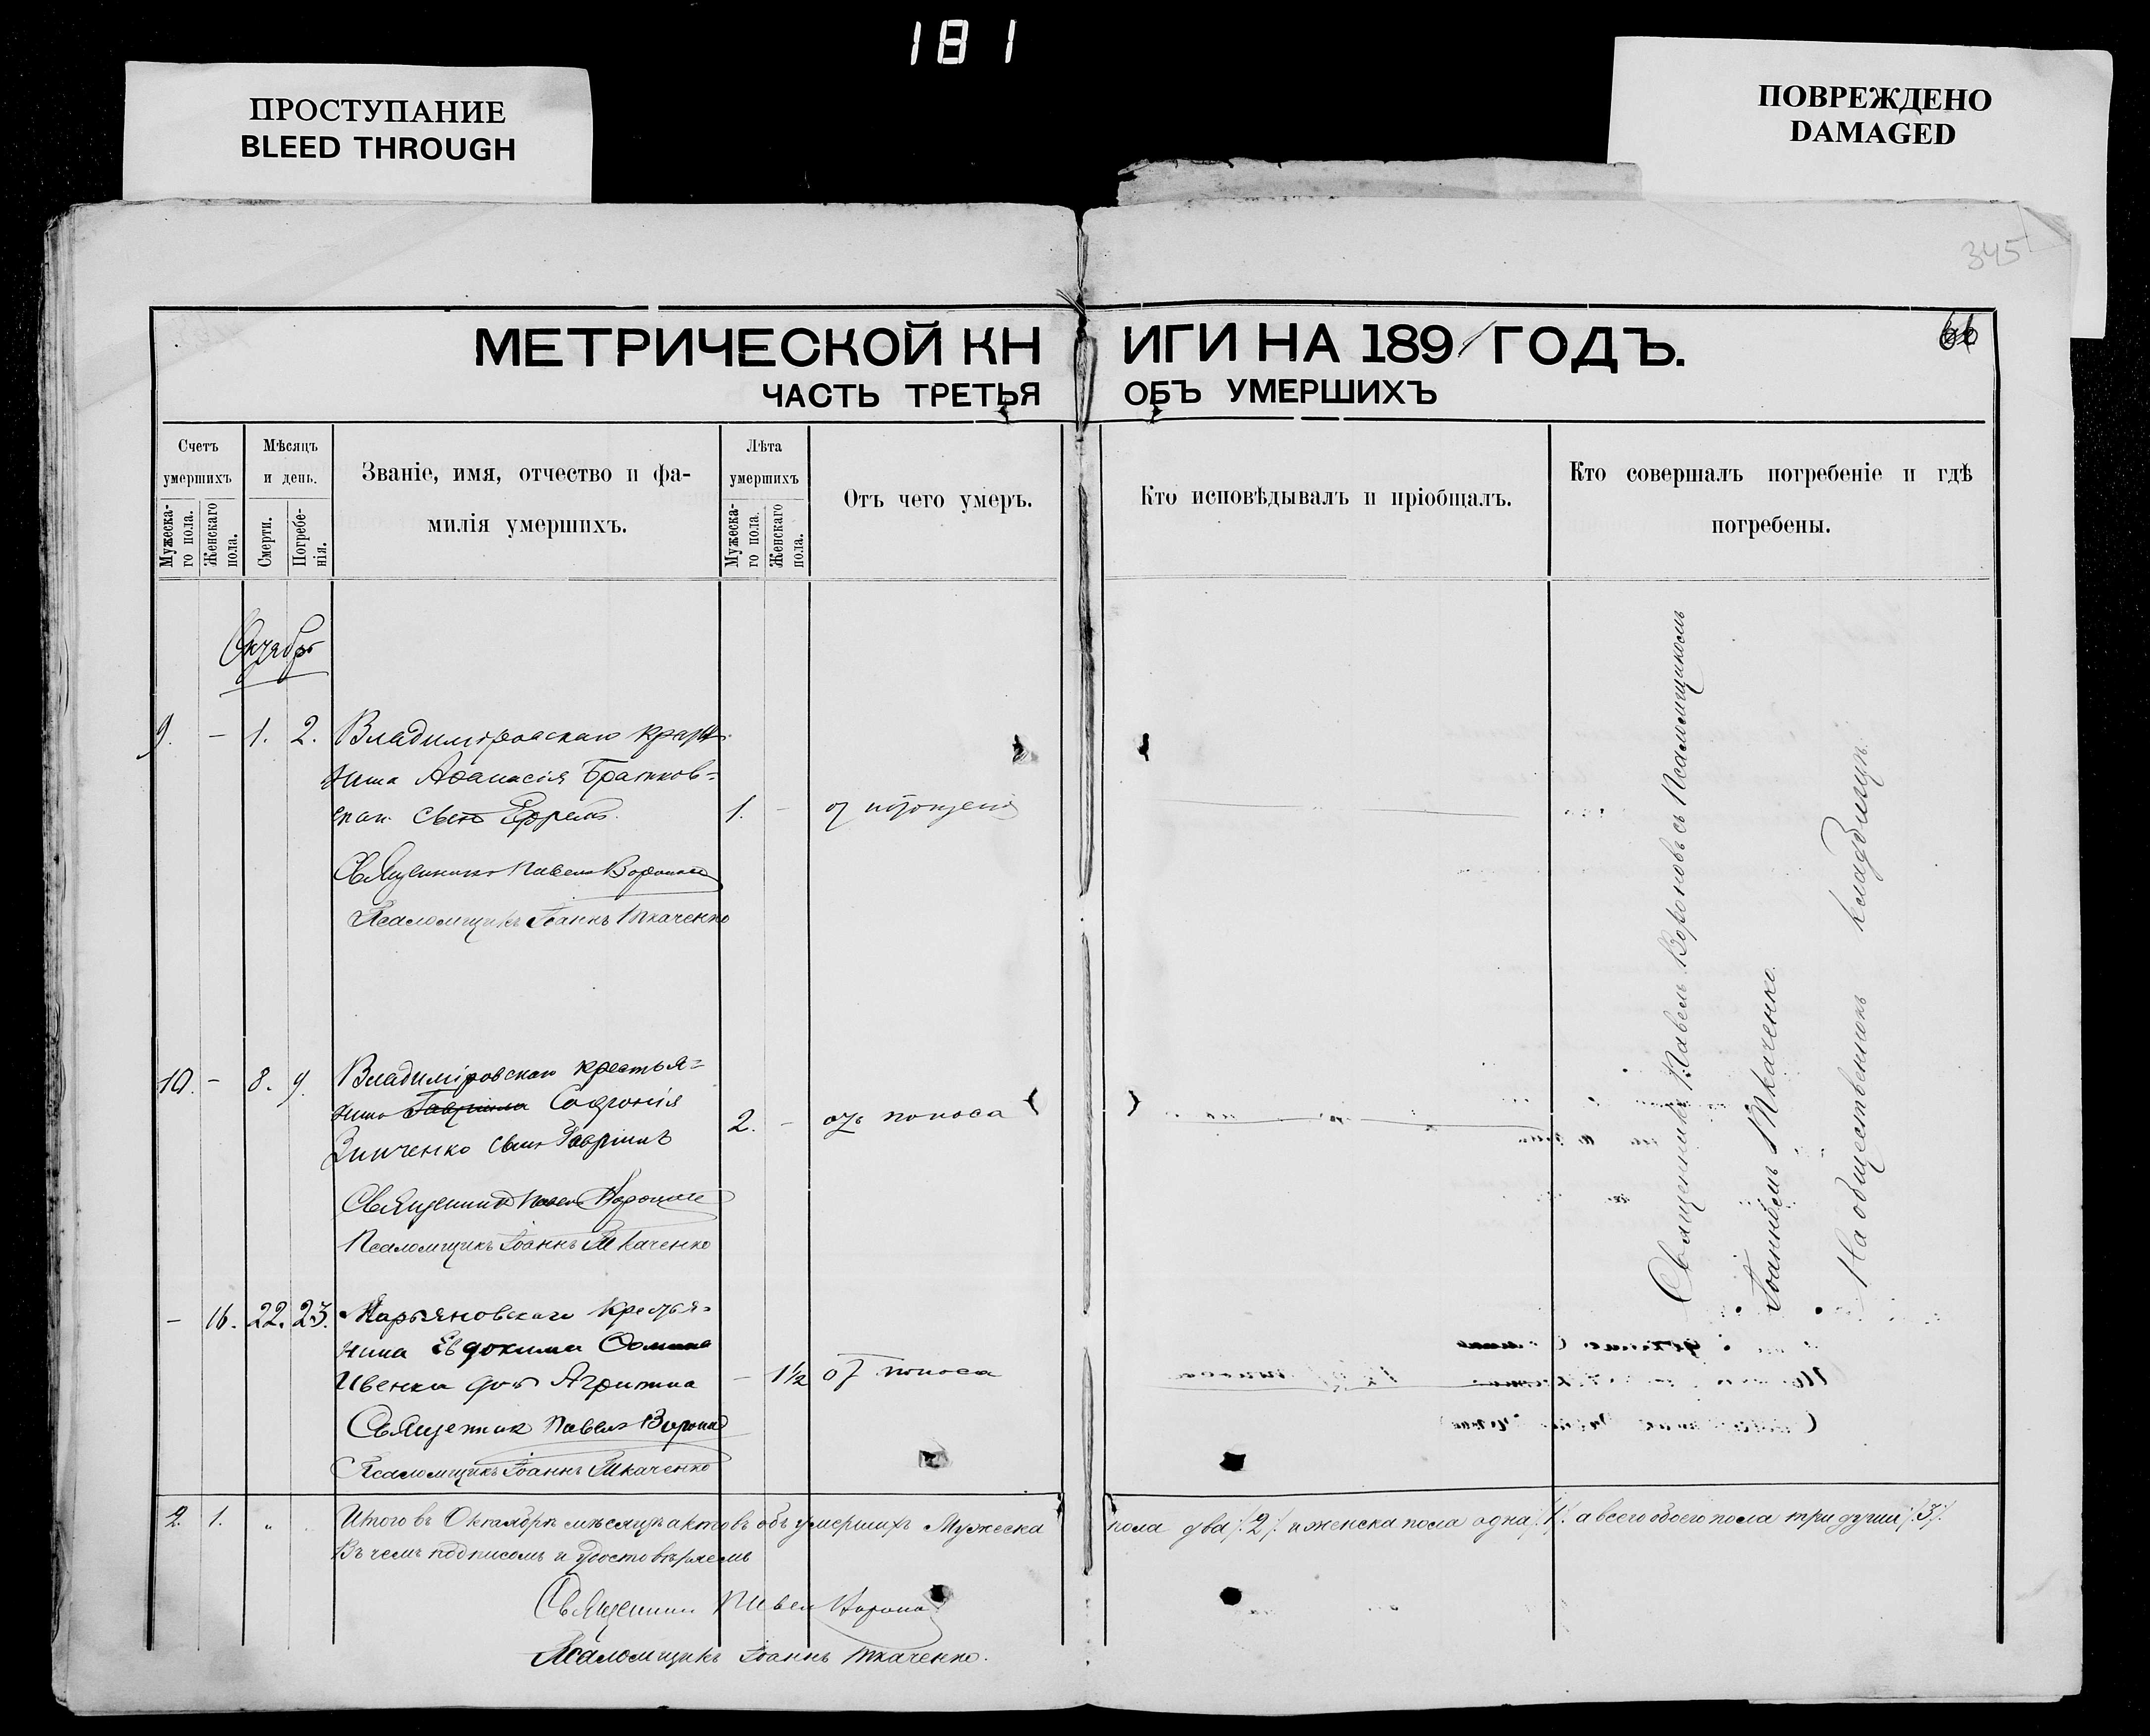 181
ПРОСТУПАНИЕ
BLEED THROUGH
ПОВРЕЖДЕНО
DAMAGED
345
МЕТРИЧЕСКОЙ КНИГИ НА 1891 ГОДЪ.
ЧАСТЬ ТРЕТЬЯ ОБЪ УМЕРШИХЪ
Счетъ умершихъ
Мужеска-го пола.
Женскаго пола.
Мѣсяцъ и день.
Смерти.
Погребе-нія.
Званіе, имя, отчество и фа-
милія умершихъ.
Лѣта умершихъ
Мужеска-го пола.
Женскаго пола.
Отъ чего умеръ.
Кто исповѣдывалъ и пріобщалъ.
Кто совершалъ погребеніе и гдѣ
погребены.
Октябрь
9. - 1. 2. Владиміровскаго
нина Аѳанасія Братков-
сынъ Ефремъ. 1. -
Священникъ Павелъ Вороновъ
Псаломщикъ Іоаннъ Ткаченко
10. - 8. 9. Владиміровскаго крестья=
нина Гавріила Софронія
Зинченко сынъ Гавріилъ 2. - отъ поноса
Священникъ Павелъ Вороновъ
Псаломщикъ Іоаннъ Ткаченко
- 16. 22. 23. Марьяновскаго крестья=
нина Евдокима
дочь Агрипина - 1½ от поноса
Священник Павелъ Воронов
Псаломщикъ Іоаннъ Ткаченко
Священникъ Павелъ Вороновъ съ Псаломщикомъ
Іоанномъ Ткаченко.
На общественномъ кладбищѣ.
2. 1. " Итого въ Октябрѣ мѣсяцѣ актовъ объ умершихъ Мужеска пола два /:2:/ и женска пола одна /:1:/ а всего обоего пола три души /:3:/.
Въ чемъ подписомъ и удостовѣряемъ
Священник Павел Воронов
Псаломщикъ Іоаннъ Ткаченко.